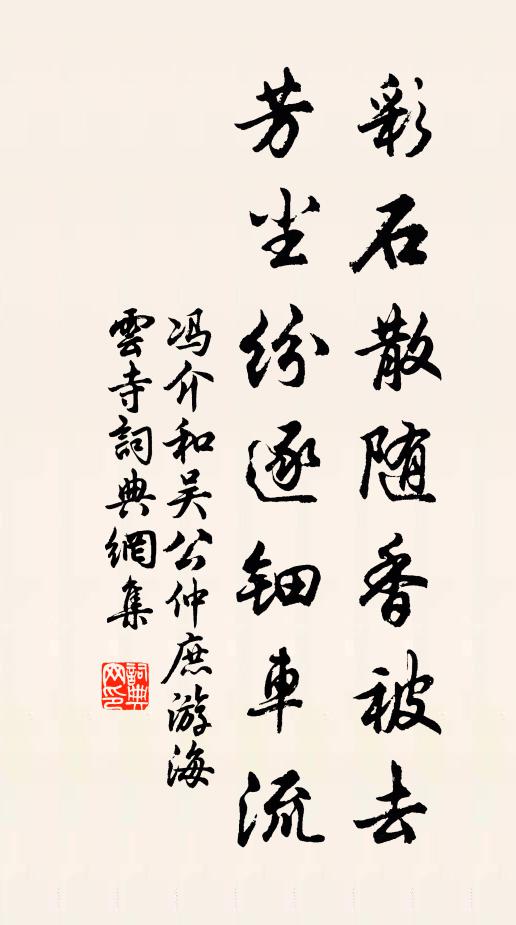 彩石散随香被去
芳尘纷逐钿車流
冯介和吴公仲庶游海
雲寺詞典網集